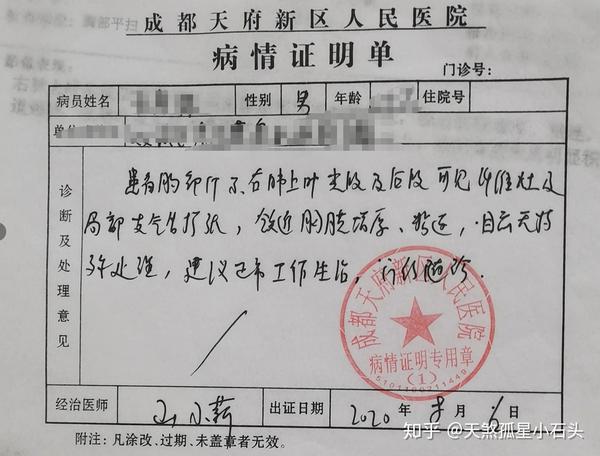 胸部平扫
成都天府新区人民医院
病情证明单
门诊号：
病员姓名 性别 男 年龄 住院号
单位
诊断及处理意见
患者胸部CT示右肺上叶尖段及后段可见纤维灶及
局部支气管扩张，邻近胸膜增厚、粘连，目前无特
殊处理，建议正常工作生活，门诊随诊.
成都天府新区人民医院
病情证明专用章
(1)
5101100211449
经治医师 出证日期 2020 年 月 6 日
附注：凡涂改、过期、未盖章者无效。
知乎 @天煞孤星小石头